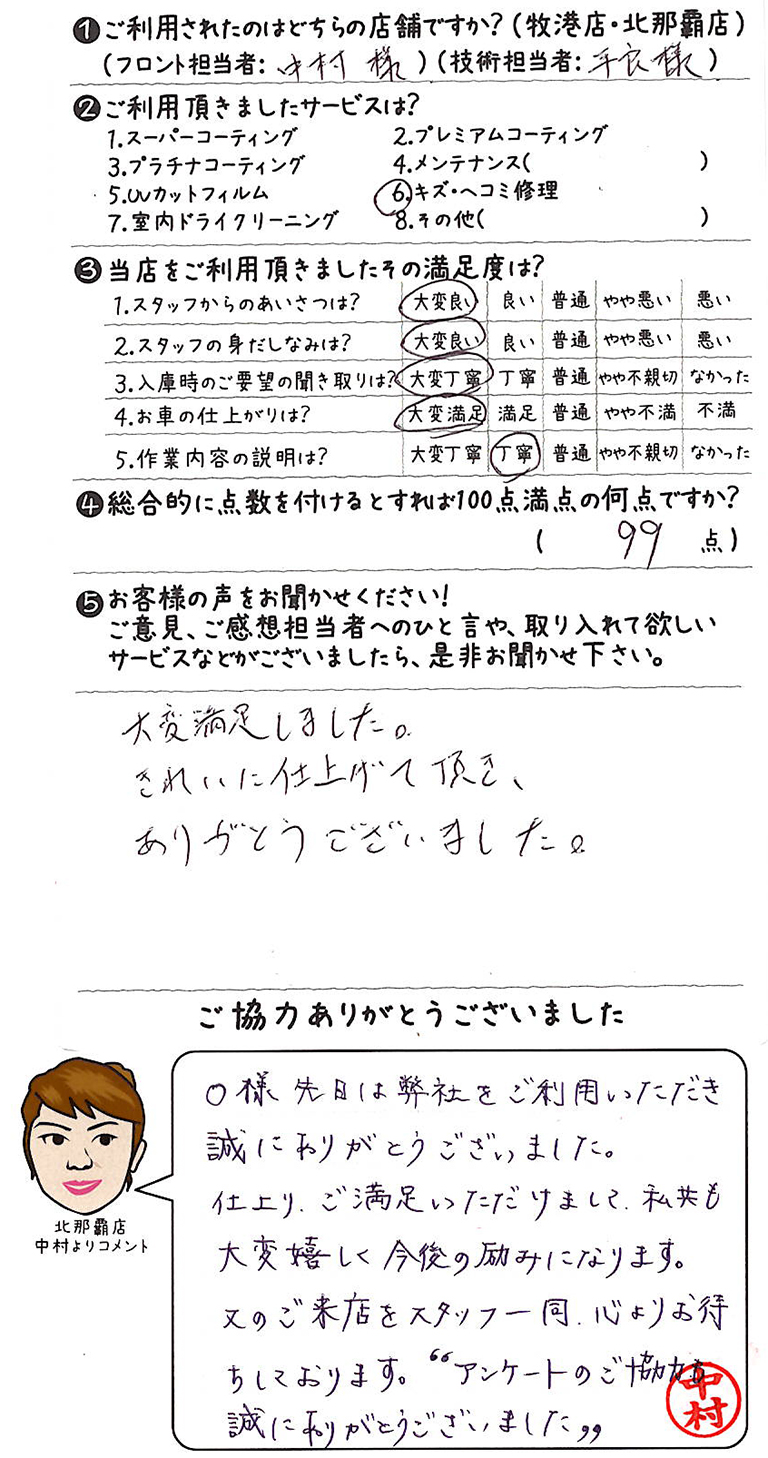 ❶ご利用されたのはどちらの店舗ですか?(牧港店・北那覇店)
(フロント担当者: 中村 様 )(技術担当者: 平良 様 )
❷ご利用頂きましたサービスは?
1.スーパーコーティング 2.プレミアムコーティング
3.プラチナコーティング 4.メンテナンス( )
5.UVカットフィルム 6.キズ・ヘコミ修理
7.室内ドライクリーニング 8.その他( )
❸当店をご利用頂きましたその満足度は?
1.スタッフからのあいさつは? 大変良い 良い 普通 やや悪い 悪い
2.スタッフの身だしなみは? 大変良い 良い 普通 やや悪い 悪い
3.入庫時のご要望の聞き取りは? 大変丁寧 丁寧 普通 やや不親切 なかった
4.お車の仕上がりは? 大変満足 満足 普通 やや不満 不満
5.作業内容の説明は? 大変丁寧 丁寧 普通 やや不親切 なかった
❹総合的に点数を付けるとすれば100点満点の何点ですか?
( 99 点)
❺お客様の声をお聞かせください!
ご意見、ご感想担当者へのひと言や、取り入れて欲しい
サービスなどがございましたら、是非お聞かせ下さい。
大変満足しました。
きれいに仕上げて頂き、
ありがとうございました。
ご協力ありがとうございました
〇様 先日は弊社をご利用いただき
誠にありがとうございました。
仕上り、ご満足いただけまして、私共も
大変嬉しく今後の励みになります。
又のご来店をスタッフ一同、心よりお待
ちしております。“アンケートのご協力も
誠にありがとうございました„
北那覇店
中村よりコメント
中村